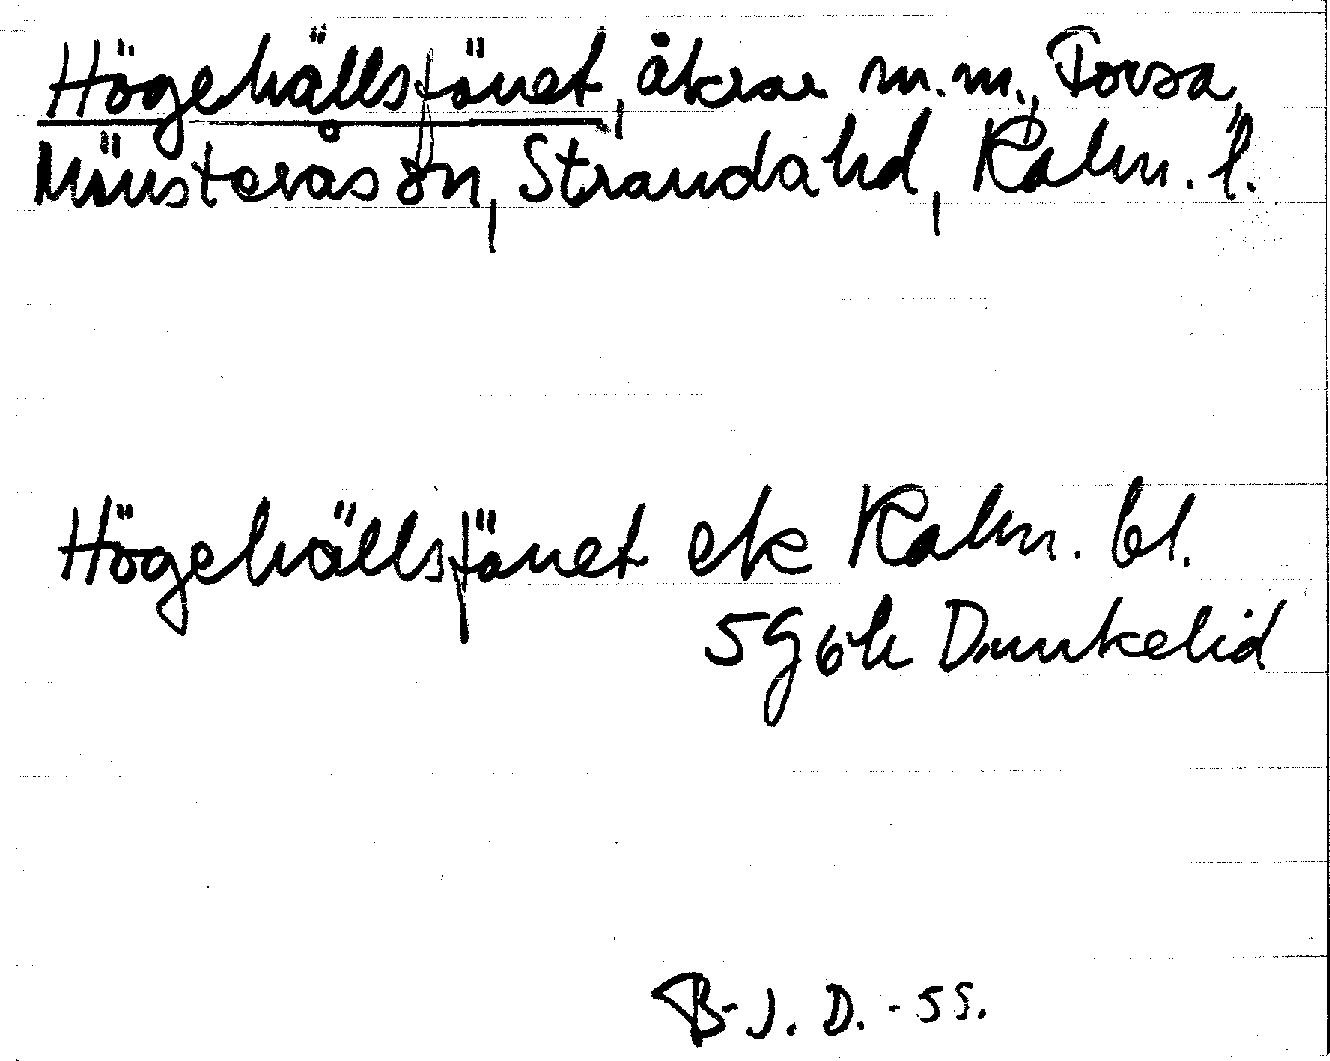 Högehällsfänet, åkrar m.m., Torsa,
Mönsterås sn, Stranda hd, Kalm. l.
Högehällsfänet ek Kalm. bl.
5 G 6h Drunkelid
B-J. D. -55.